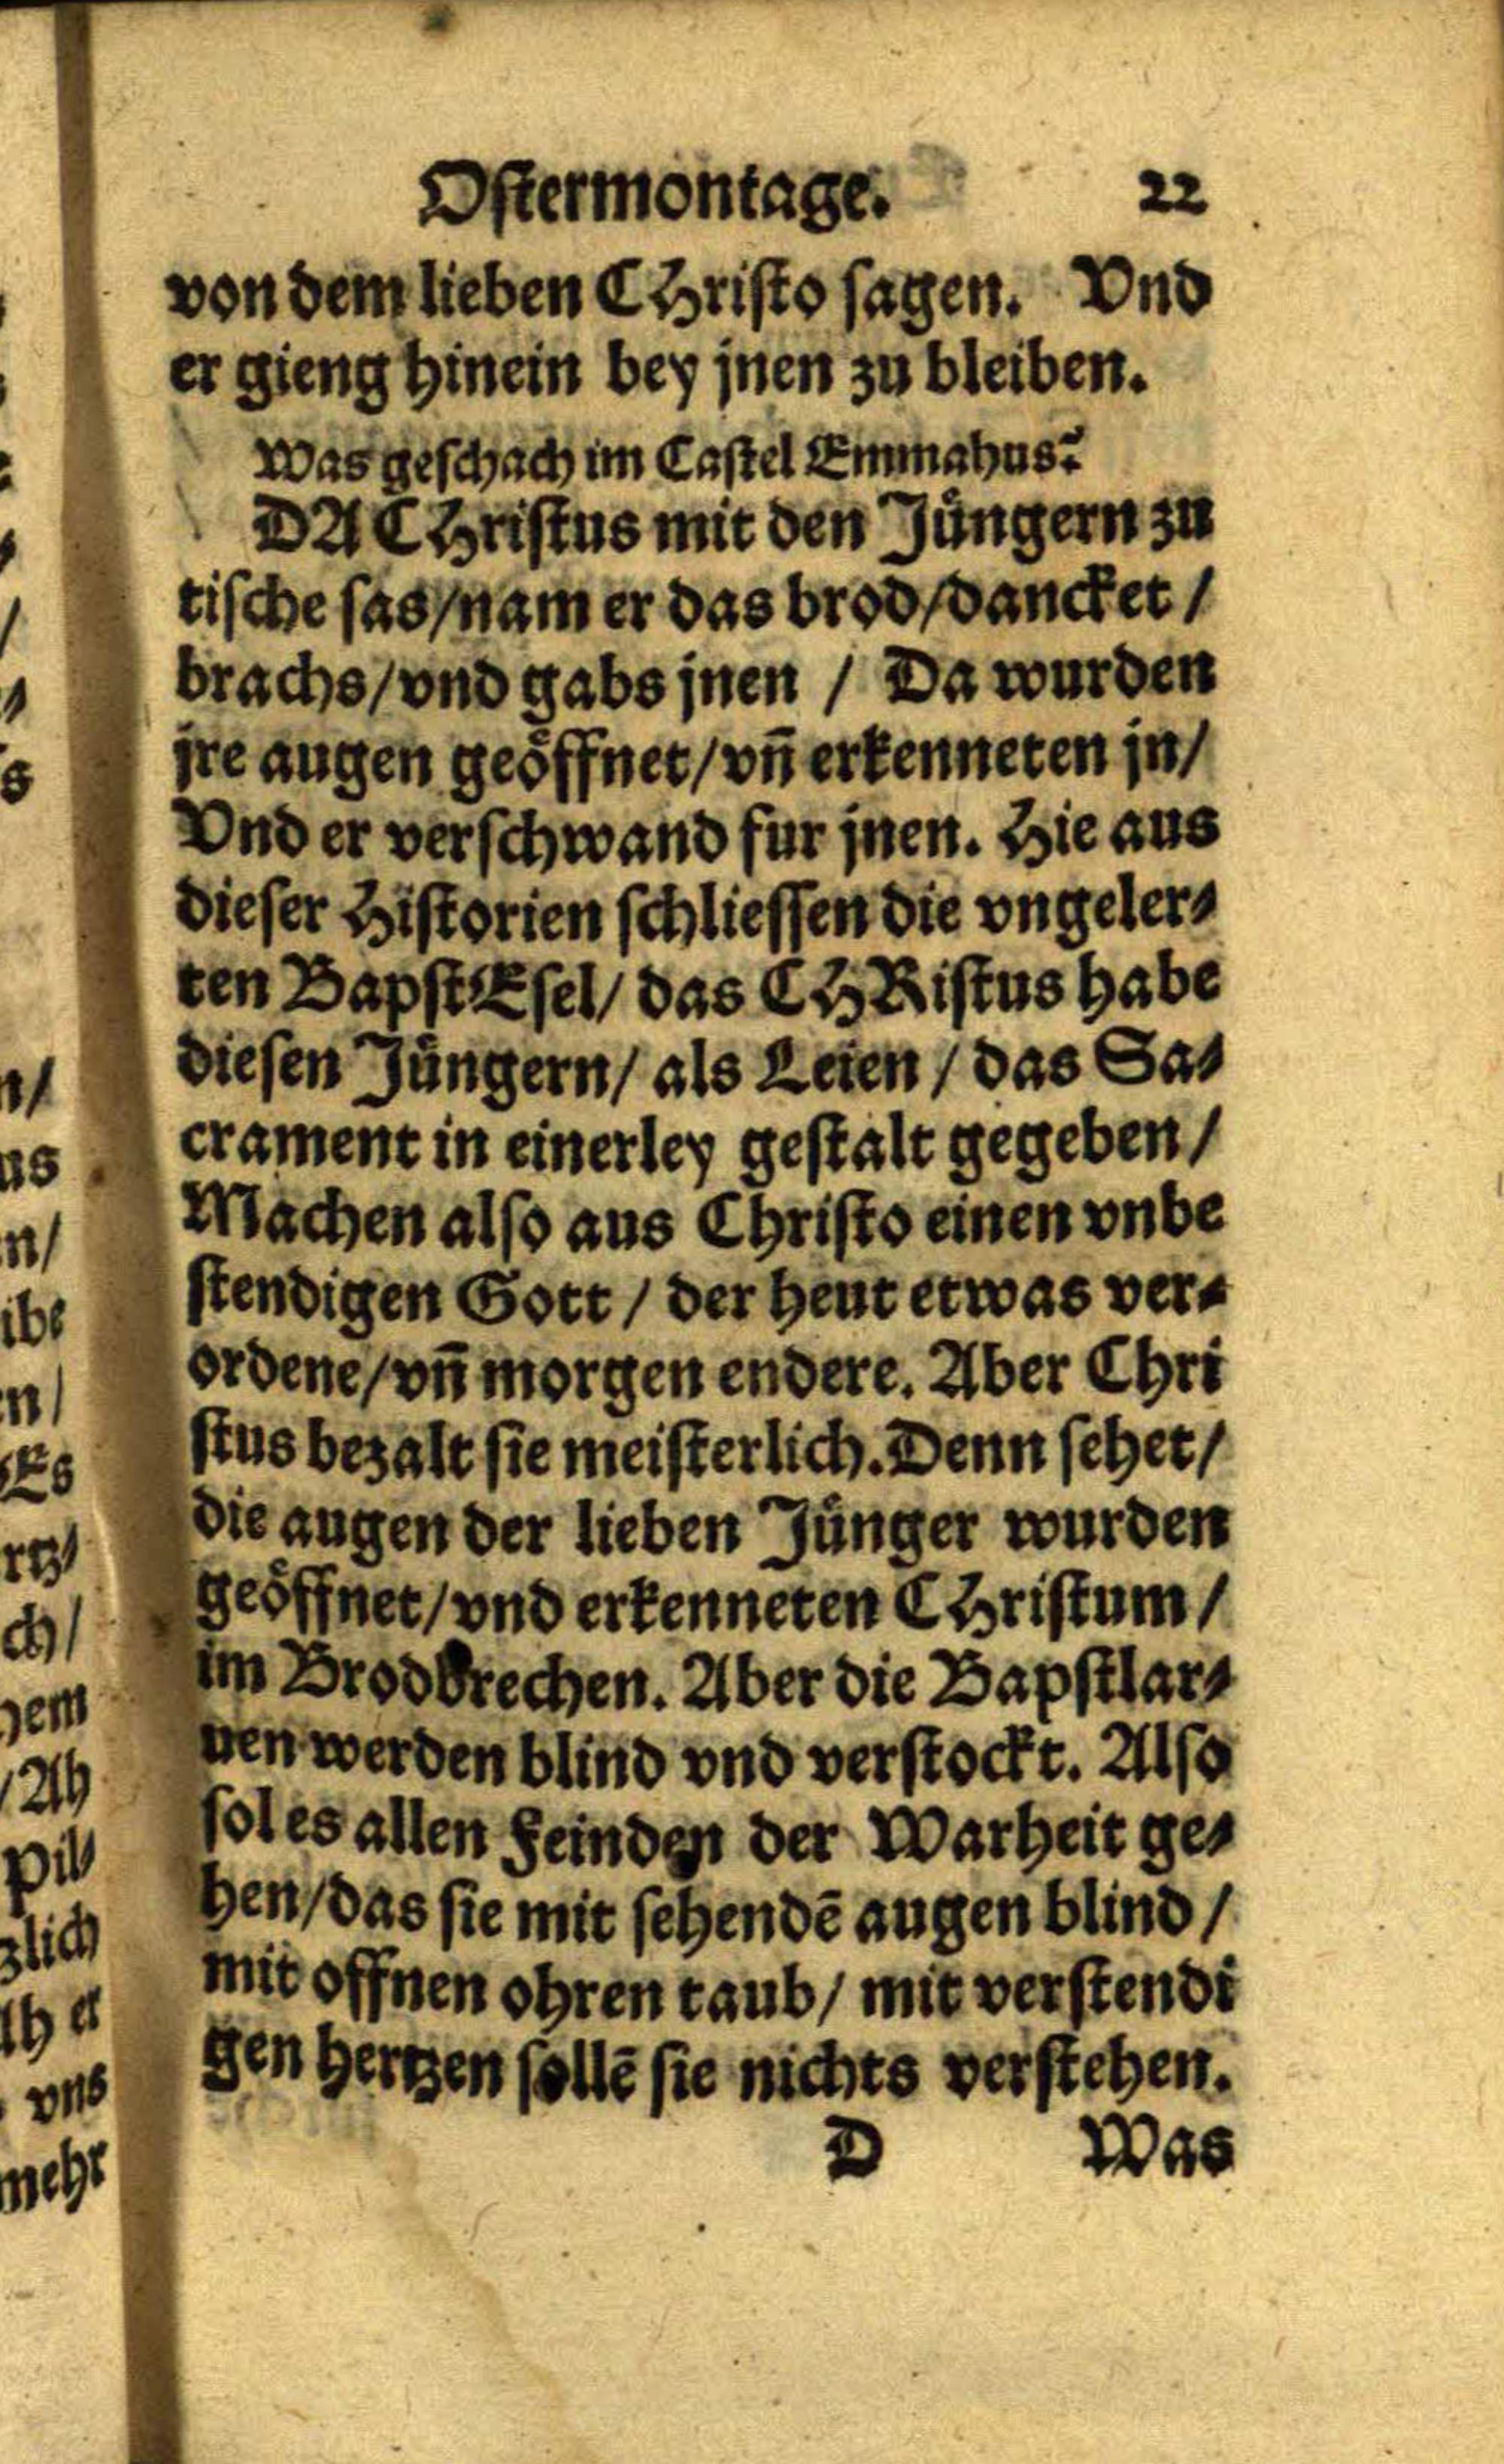 Ostermontage. 22
von dem lieben CHristo sagen. Vnd
er gieng hinein bey jnen zu bleiben.
Was geschach im Castel Emmahus?
DA CHristus mit den Jüngern zu
tische sas/nam er das brod/dancket /
brachs/vnd gabs jnen / Da wurden
jre augen geöffnet/vn̄ erkenneten jn/
Vnd er verschwand fur jnen. Hie aus
dieser Historien schliessen die vngeler⸗
ten BapstEsel/ das CHRistus habe
diesen Jüngern/ als Leien / das Sa⸗
crament in einerley gestalt gegeben /
Machen also aus Christo einen vnbe
stendigen Gott / der heut etwas ver⸗
ordene/vn̄ morgen endere. Aber Chri
stus bezalt sie meisterlich.Denn sehet/
die augen der lieben Jünger wurden
geöffnet/vnd erkenneten CHristum /
im Brodbrechen. Aber die Bapstlar⸗
uen werden blind vnd verstockt. Also
sol es allen Feinden der Warheit ge⸗
hen/das sie mit sehendē augen blind /
mit offnen ohren taub/ mit verstendi
gen hertzen sollē sie nichts verstehen.
D Was